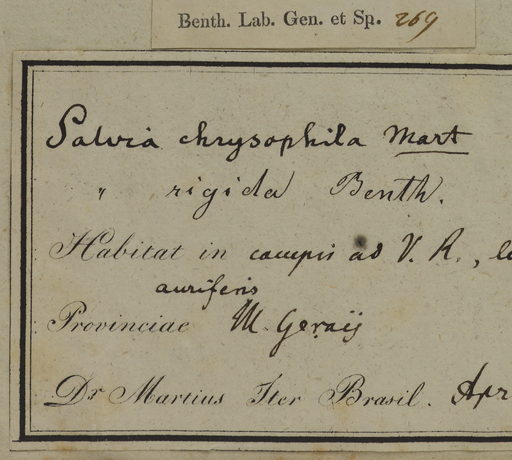 Benth. Lab. Gen. et Sp. 269
Salvia chrysophila Mart
" rigida Benth.
Habitat in campis ad V. R.,
auriferis
Provinciae M. Geraës
Dr Martius Iter Brasil. Apr